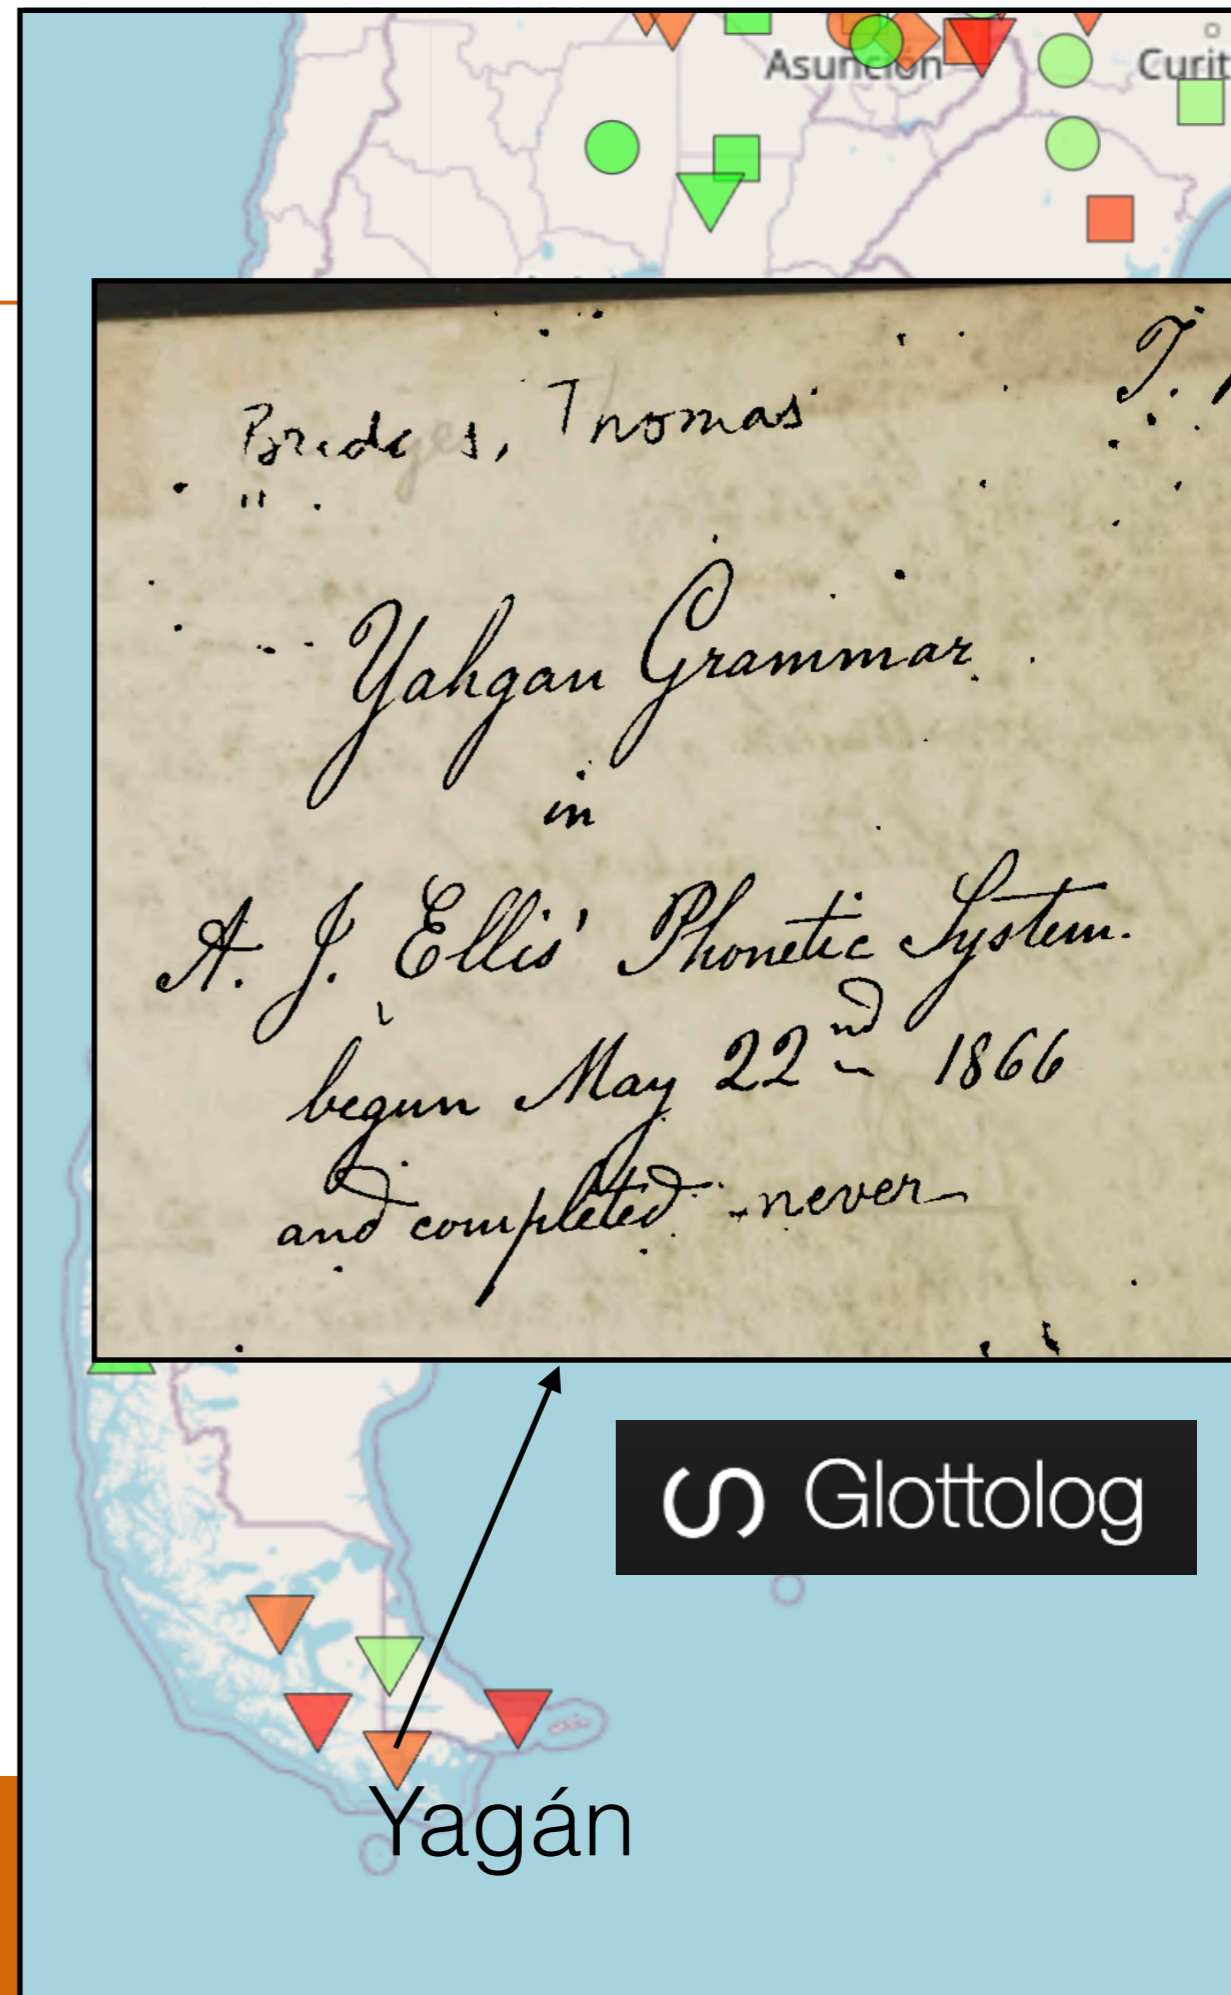 Asunción
Curit
T.
Bridges, Thomas
"
Yahgan Grammar.
in
A. J. Ellis' Phonetic System.
begun May 22nd 1866
and completed never
Glottolog
Yagán